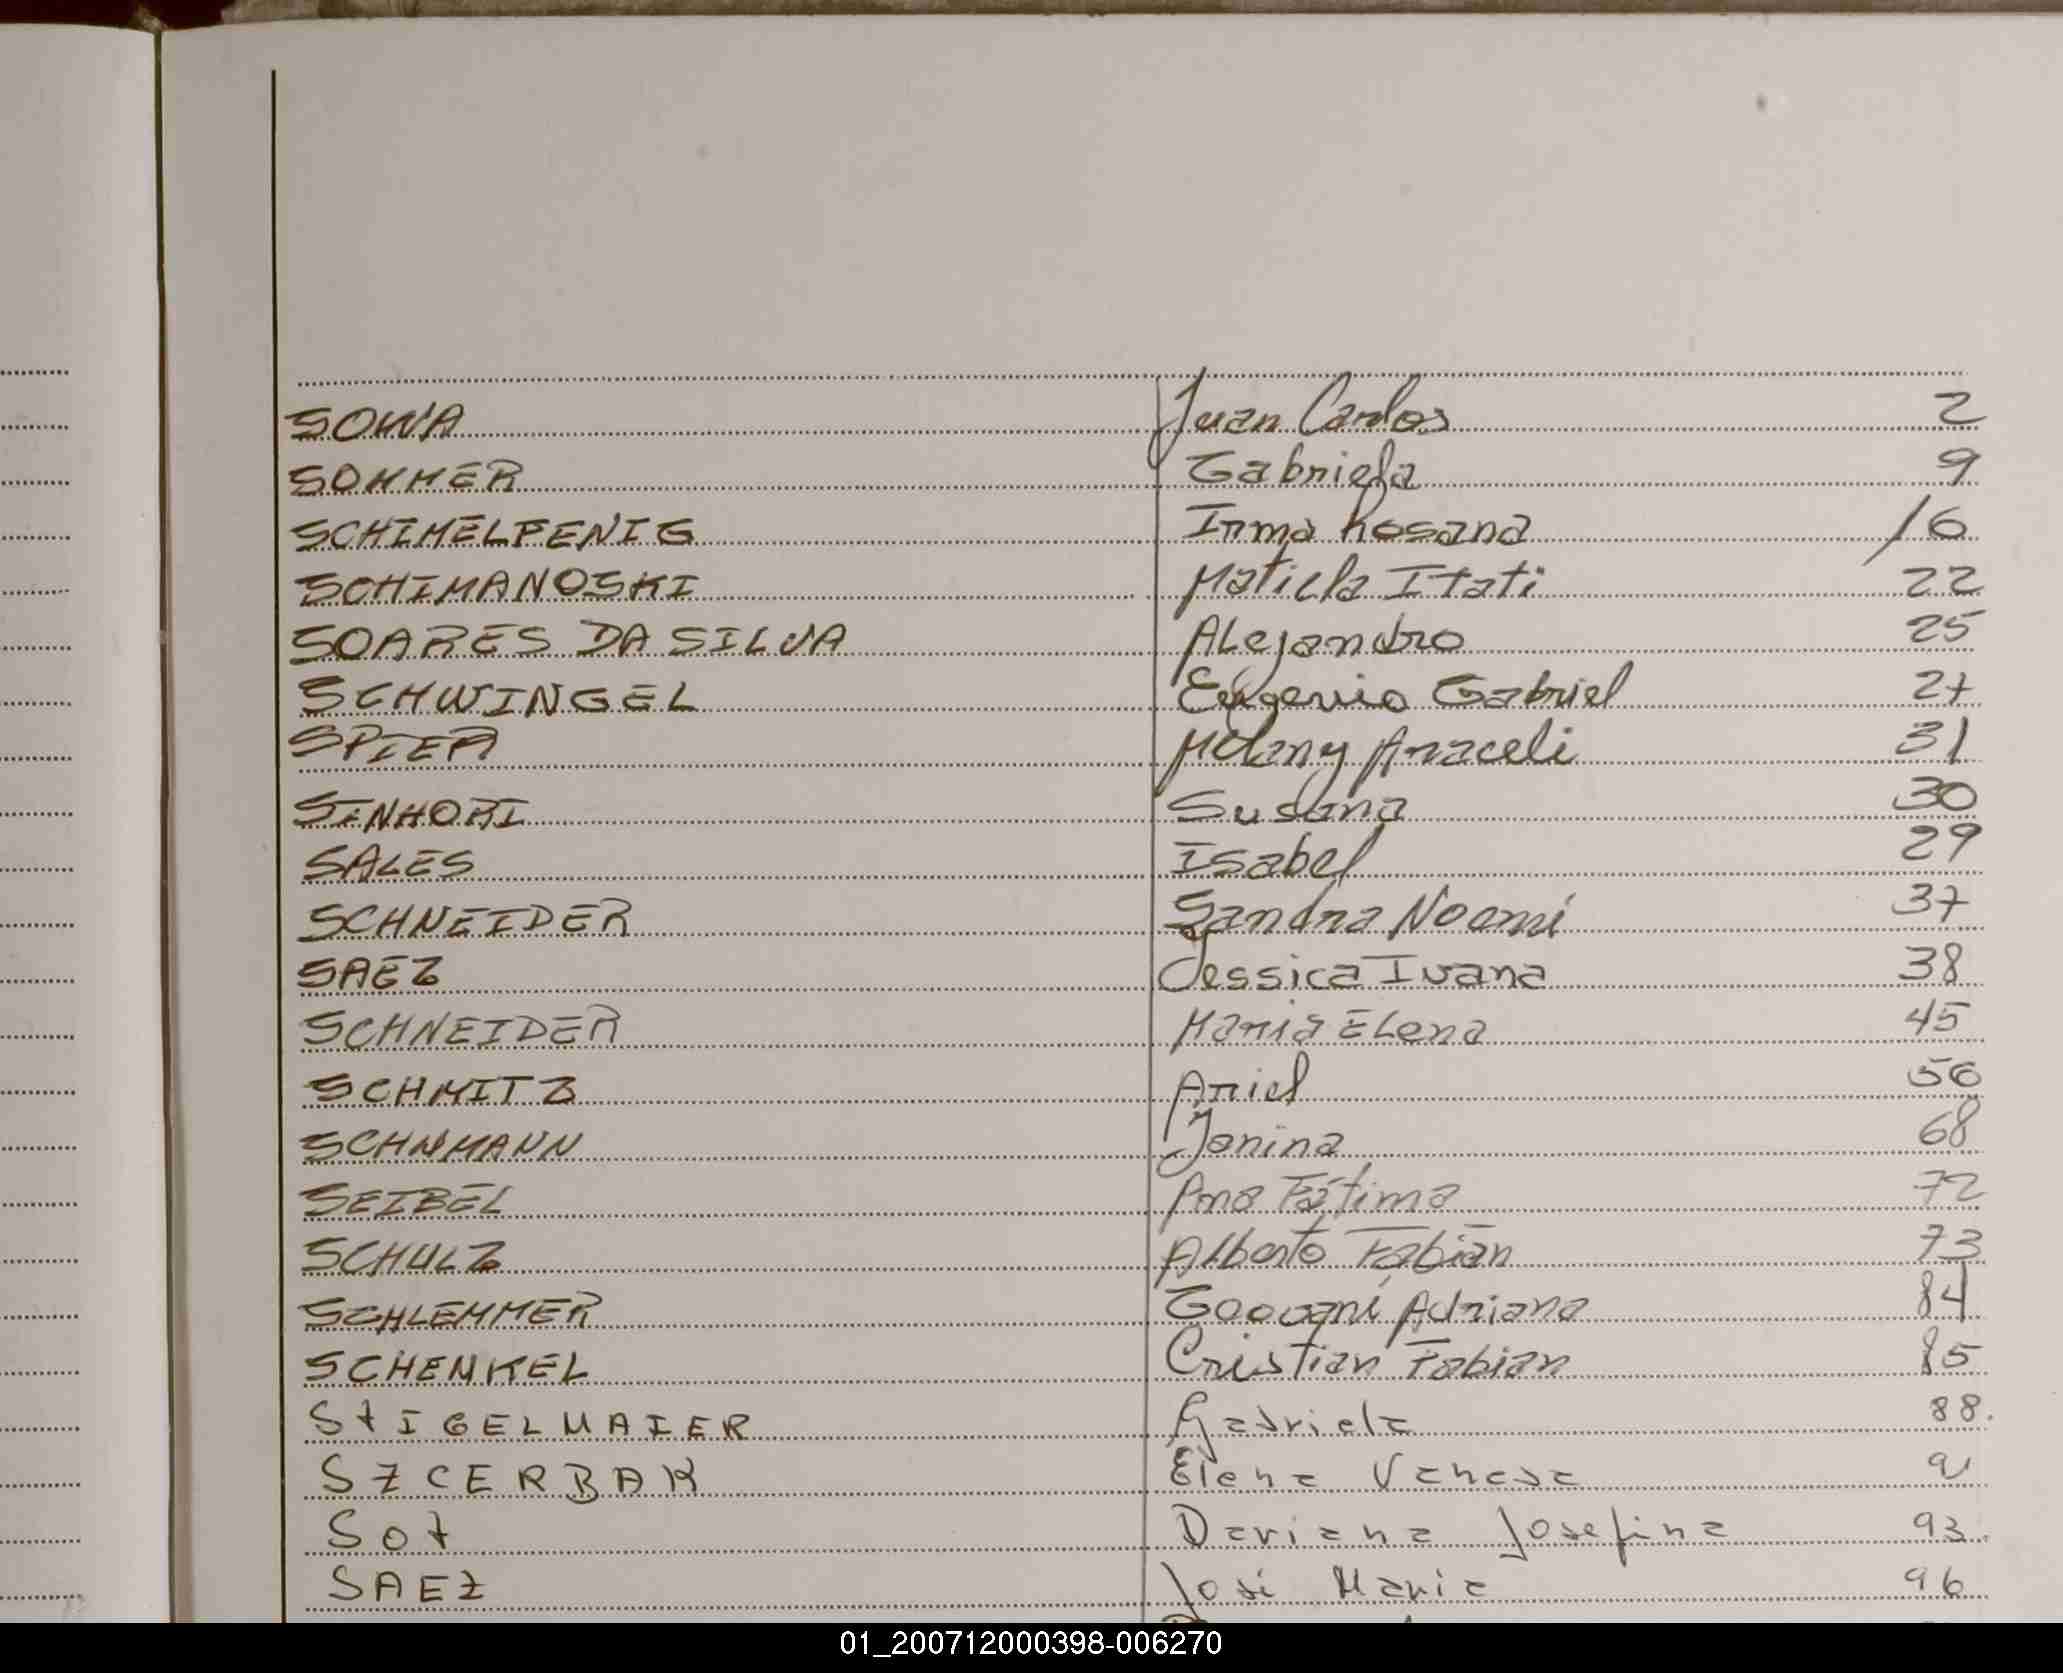 SOWA Juan Carlos 2
SOMMER Gabriela 9
SCHIMELPENIG Irma Rosana 16
SCHIMANOSKI Maticla Itati 22
SOARES DA SILVA Alejandro 25
SCHWINGEL Eugenio Gabriel 27
SPIER Melany Araceli 31
SINHORI Susana 30
SALES Isabel 29
SCHNEIDER Sandra Noemí 37
SAEZ Jessica Ivana 38
SCHNEIDER Maria Elena 45
SCHMITZ Ariel 56
SCHNMANN Janina 68
SEIBEL Ana Fátima 72
SCHULZ Alberto Fabián 73
SCHLEMMER Adriana 84
SCHENKEL Cristian Fabian 85
StIGELMAIER Gabriela 88.
SZCERBAK Elena Vanesa 91
Sot Dariana Josefina 93.
SAEZ José Maria 96
01_200712000398-006270